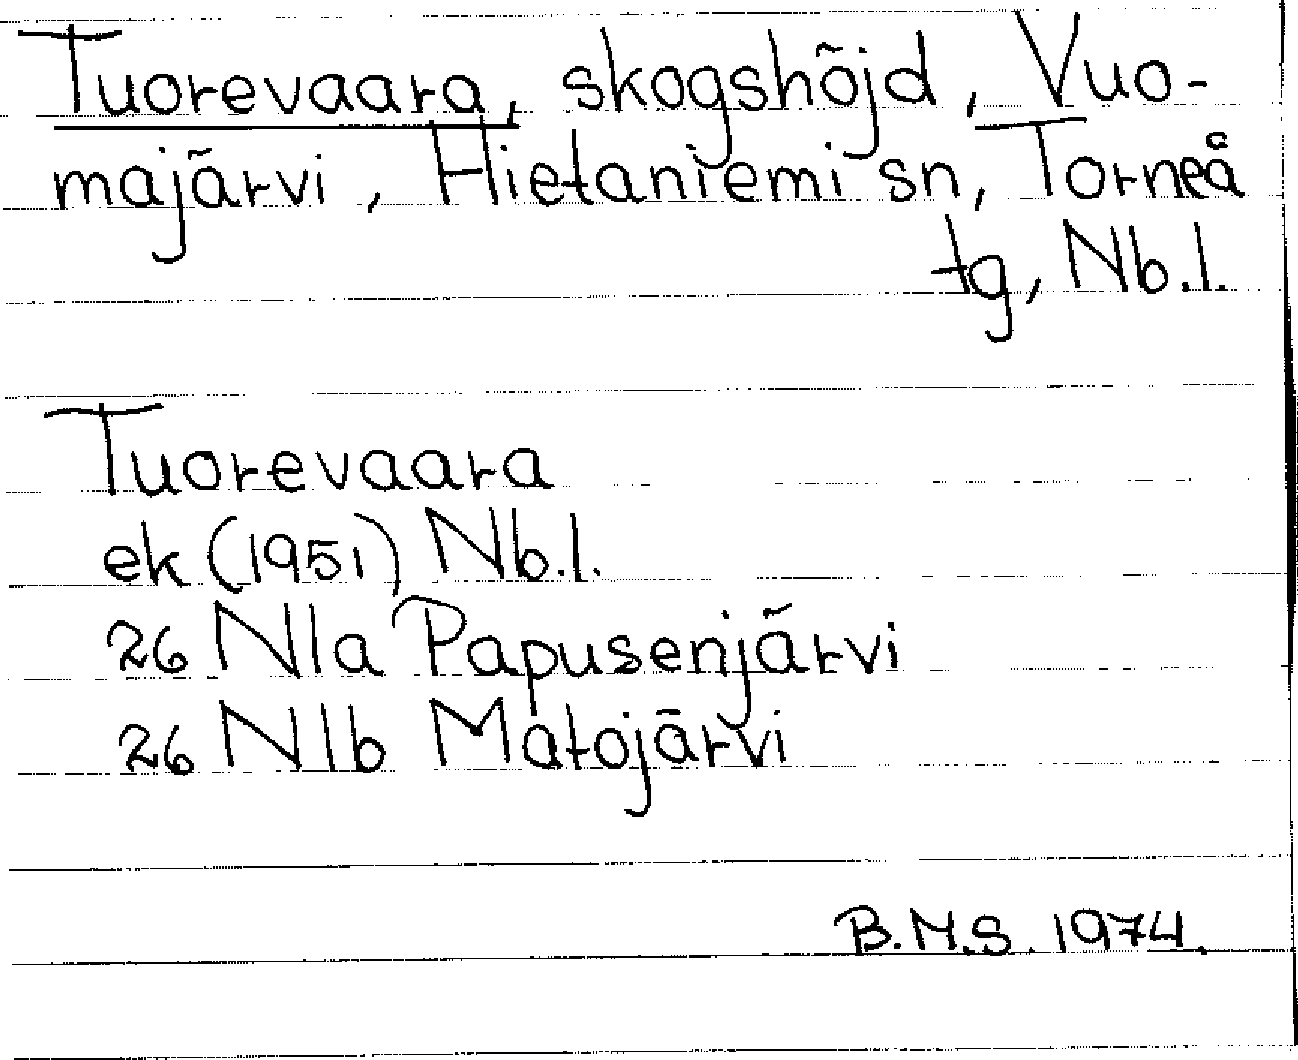 Tuorevaara, skogshöjd, Vuo-
majärvi, Hietaniemi sn, Torneå
tg, Nb.l.
Tuorevaara
ek (1951) Nb.l.
26 N1a Papusenjärvi
26 N1b Matojärvi
B.M.S. 1974.